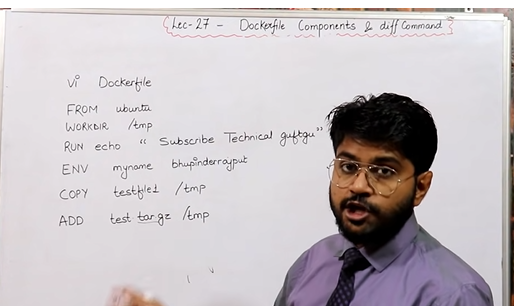 Lec-27 - Dockerfile Components & diff Command
Vi Dockerfile
FROM ubuntu
WORKDIR /tmp
RUN echo "Subscribe Technical guftgu"
ENV myname bhupinderrajput
COPY testfile1 /tmp
ADD test.tar.gz /tmp